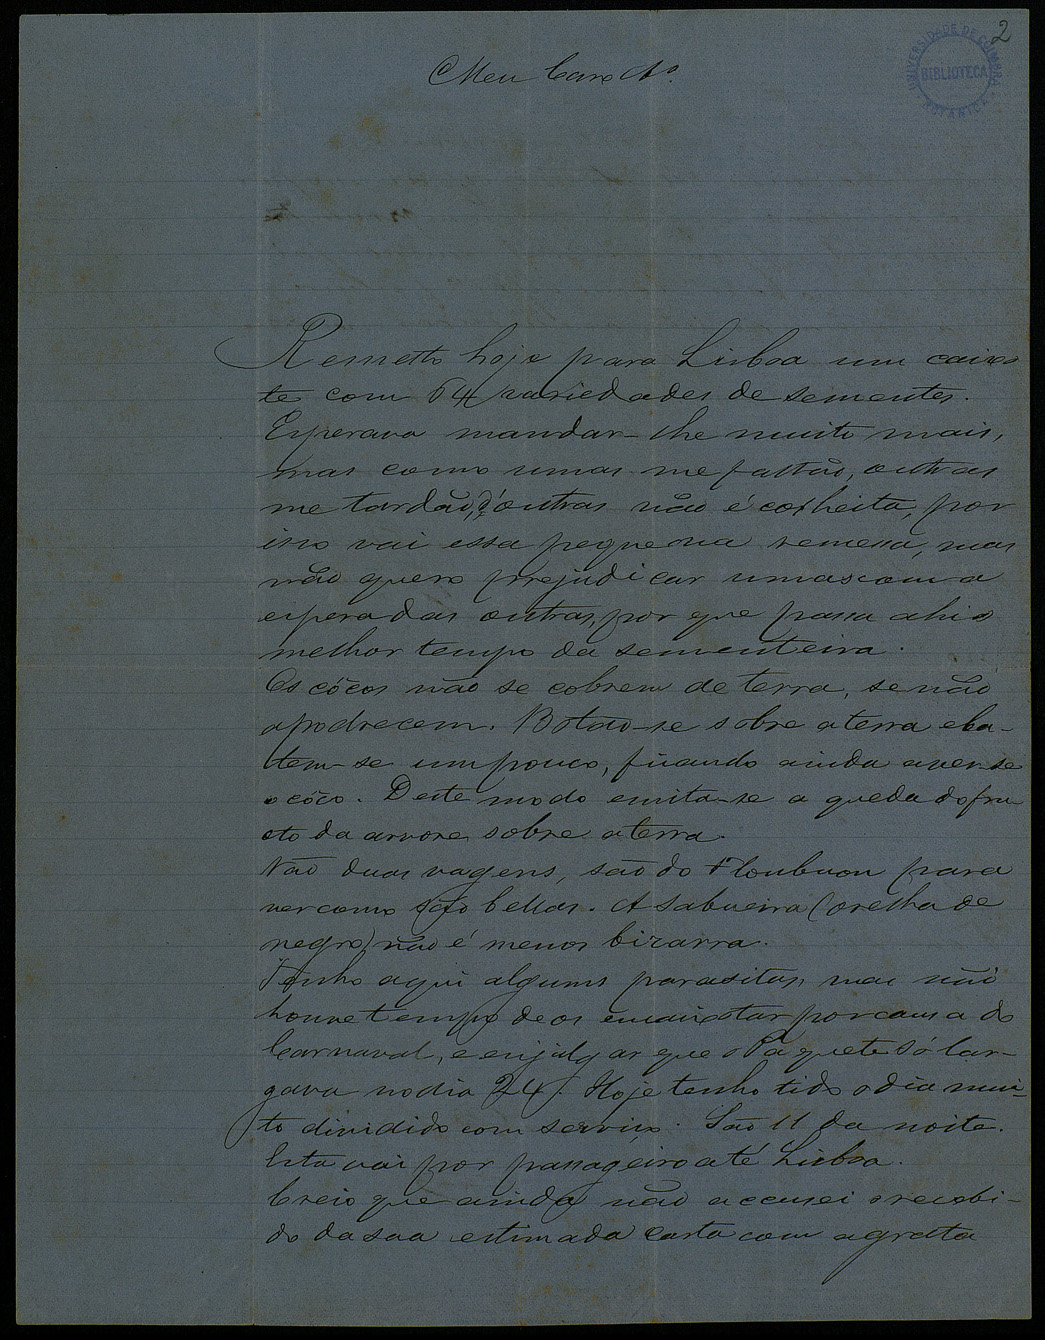 2
UNIVERSIDADE DE COIMBRA
BIBLIOTECA
BOTANICA
Meu Caro Aº
Remetto hoje para Lisboa um caixo
te com 64 variedades de sementes.
Esperava mandar-lhe muito mais,
mas como umas me faltão, outras
me tardão, d'outras não é colheita, por
isso vai essa pequena remessa, mas
não quero prejudicar umas com a
espera das outras, por que passa ahi o
melhor tempo da sementeira.
Os côcos não se cobrem de terra, se não
apodrecem. Botão-se sobre a terra e ba-
tem-se um pouco, ficando ainda a ver-se
o côco. Deste modo emita-se a queda do fru
cto da arvore sobre a terra.
Vão duas vagens, são do para
ver como são bellas. A Sabueira (orelha de
negro) não é menos bizarra.
Tenho aqui alguns parasitas, mas não
houve tempo de os encaixotar por causa do
Carnaval, e em julgar que o Paquete só lar-
gava no dia 24. Hoje tenho tido o dia mui-
to dividido com serviço. São 11 da noite.
Esta vai por passageiro até Lisboa.
Creio que ainda não accusei o recebi-
do da sua estimada carta com a grata